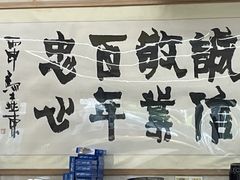 誠信
敬業
百年
忠心